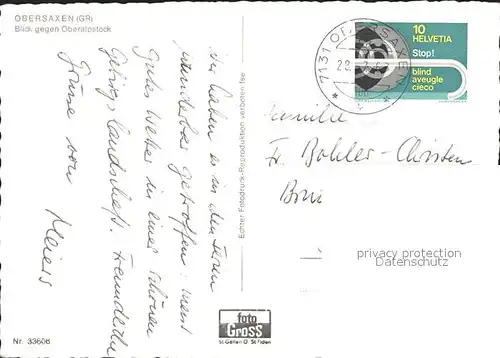 OBERSAXEN (GR)
Blick gegen Oberalpstock
wir haben es in den Ferien
wunderbar getroffen: meist
gutes Wetter in einer schönen
Gebirgslandschaft. Freundliche
Grüsse von
Meiers
Echter Fotodruck-Reproduktion verboten
7131 OBERSAXEN
10
HELVETIA
Stop!
blind
aveugle
cieco
Familie
Fr. Bohler-Christen
privacy protection
Datenschutz
foto
Gross
St. Gallen
Nr. 33606